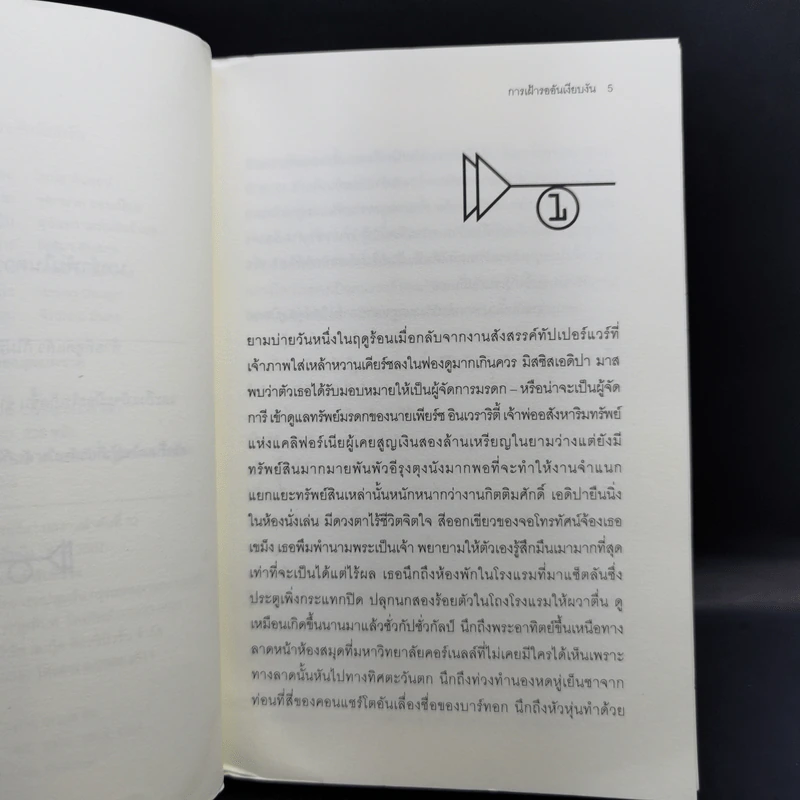 การเฝ้ารออันเงียบงัน 5
1
ยามบ่ายวันหนึ่งในฤดูร้อนเมื่อกลับจากงานสังสรรค์ทัปเปอร์แวร์ที่
เจ้าภาพใส่เหล้าหวานเคียร์ชลงในฟองดูมากเกินควร มิสซิสเอดิปา มาส
พบว่าตัวเธอได้รับมอบหมายให้เป็นผู้จัดการมรดก – หรือน่าจะเป็นผู้จัด
การี เข้าดูแลทรัพย์มรดกของนายเพียร์ซ อินเวราริตี้ เจ้าพ่ออสังหาริมทรัพย์
แห่งแคลิฟอร์เนียผู้เคยสูญเงินสองล้านเหรียญในยามว่างแต่ยังมี
ทรัพย์สินมากมายพันพัวอีรุงตุงนังมากพอที่จะทำให้งานจำแนก
แยกแยะทรัพย์สินเหล่านั้นหนักหนากว่างานกิตติมศักดิ์ เอดิปายืนนิ่ง
ในห้องนั่งเล่น มีดวงตาไร้ชีวิตจิตใจ สีออกเขียวของจอโทรทัศน์จ้องเธอ
เขม็ง เธอพึมพำนามพระเป็นเจ้า พยายามให้ตัวเองรู้สึกมึนเมามากที่สุด
เท่าที่จะเป็นได้แต่ไร้ผล เธอนึกถึงห้องพักในโรงแรมที่มาแซ็ตลันซึ่ง
ประตูเพิ่งกระแทกปิด ปลุกนกสองร้อยตัวในโถงโรงแรมให้ผวาตื่น ดู
เหมือนเกิดขึ้นนานมาแล้วชั่วกัปชั่วกัลป์ นึกถึงพระอาทิตย์ขึ้นเหนือทาง
ลาดหน้าห้องสมุดที่มหาวิทยาลัยคอร์เนลล์ที่ไม่เคยมีใครได้เห็นเพราะ
ทางลาดนั้นหันไปทางทิศตะวันตก นึกถึงท่วงทำนองหดหู่เย็นชาจาก
ท่อนที่สี่ของคอนแชร์โตอันเลื่องชื่อของบาร์ทอก นึกถึงหัวหุ่นทำด้วย